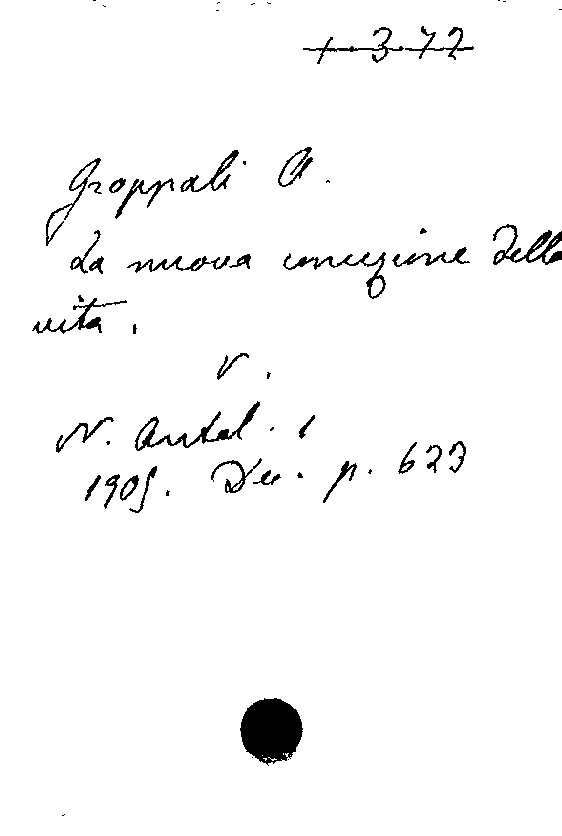 1.3.72
Groppali A.
La nuova concezione della
vita.
V.
N. Antol. 1
1905. Dec. p. 623